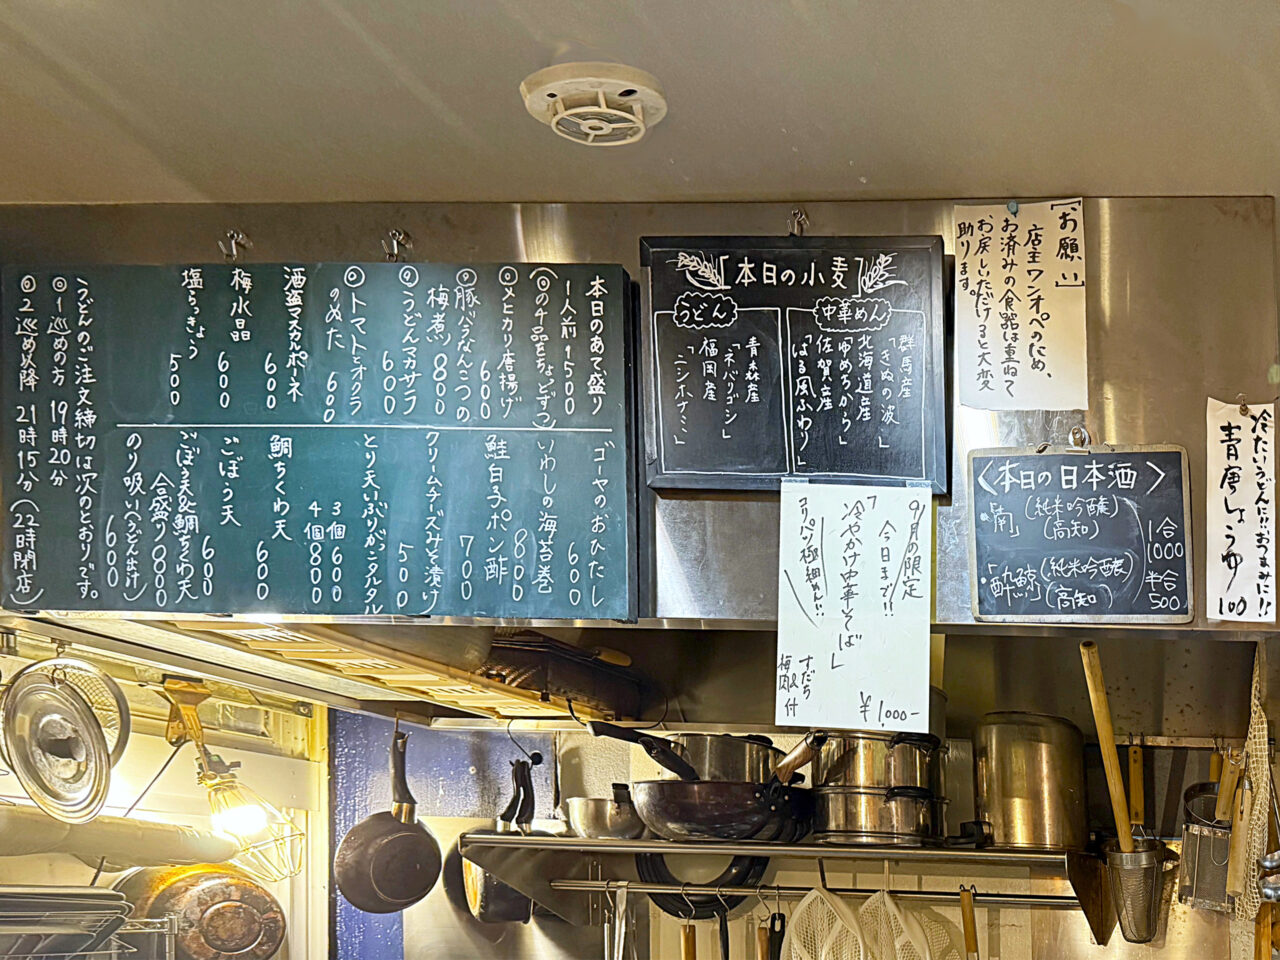 本日のあて盛り
1人前1500
(◎の4品をちょっとずつ)
◎メヒカリ唐揚げ
600
◎豚バラなんこつの
梅煮 800
◎うどんマカサラ
600
◎トマトとオクラ
のぬた 600
酒盗マスカルポーネ
600
梅水晶
600
塩らっきょう
500
ゴーヤのおひたし
600
いわしの海苔巻
800
鮭白子ポン酢
700
クリームチーズみそ漬け
500
とり天いぶりがっこタルタル
3個600
4個800
鯛ちくわ天
600
ごぼう天
600
ごぼう天&鯛ちくわ天
合盛り800
のり吸い(うどん出汁)
600
うどんのご注文締切は次のとおりです。
◎1巡めの方 19時20分
◎2巡め以降 21時15分(22時閉店)
「本日の小麦」
中華めん
群馬産
「きぬの波」
北海道産
「ゆめちから」
佐賀産
「はる風ふわり」
うどん
青森産
「ネバリゴシ」
福岡産
「ニシホナミ」
[お願い]
店主ワンオペのため、
お済みの食器は重ねて
お戻しいただけると大変
助ります。
〈本日の日本酒〉
「南」(純米吟醸)
(高知)
「酔鯨」(純米吟醸)
(高知)
1合
1000
半合
500
冷たいうどんに!!おつまみに!!
青唐しょうゆ
100
9月の限定
今日まで!!
「冷やかけ中華そば」
コリパツ極細めん!!
すだち
梅肉&
付
¥1,000-